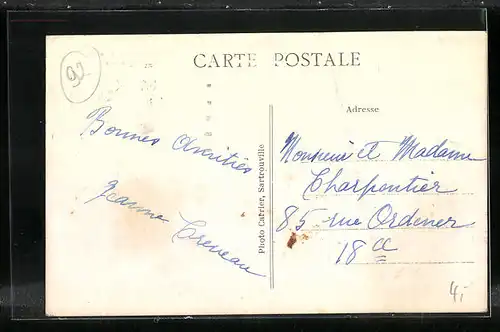 92
CARTE POSTALE
Adresse
Bonnes Amitiés
Jeanne
Photo Cafrier, Sartrouville
Monsieur et Madame
Charpentier
85 rue Ordener
18
4,-